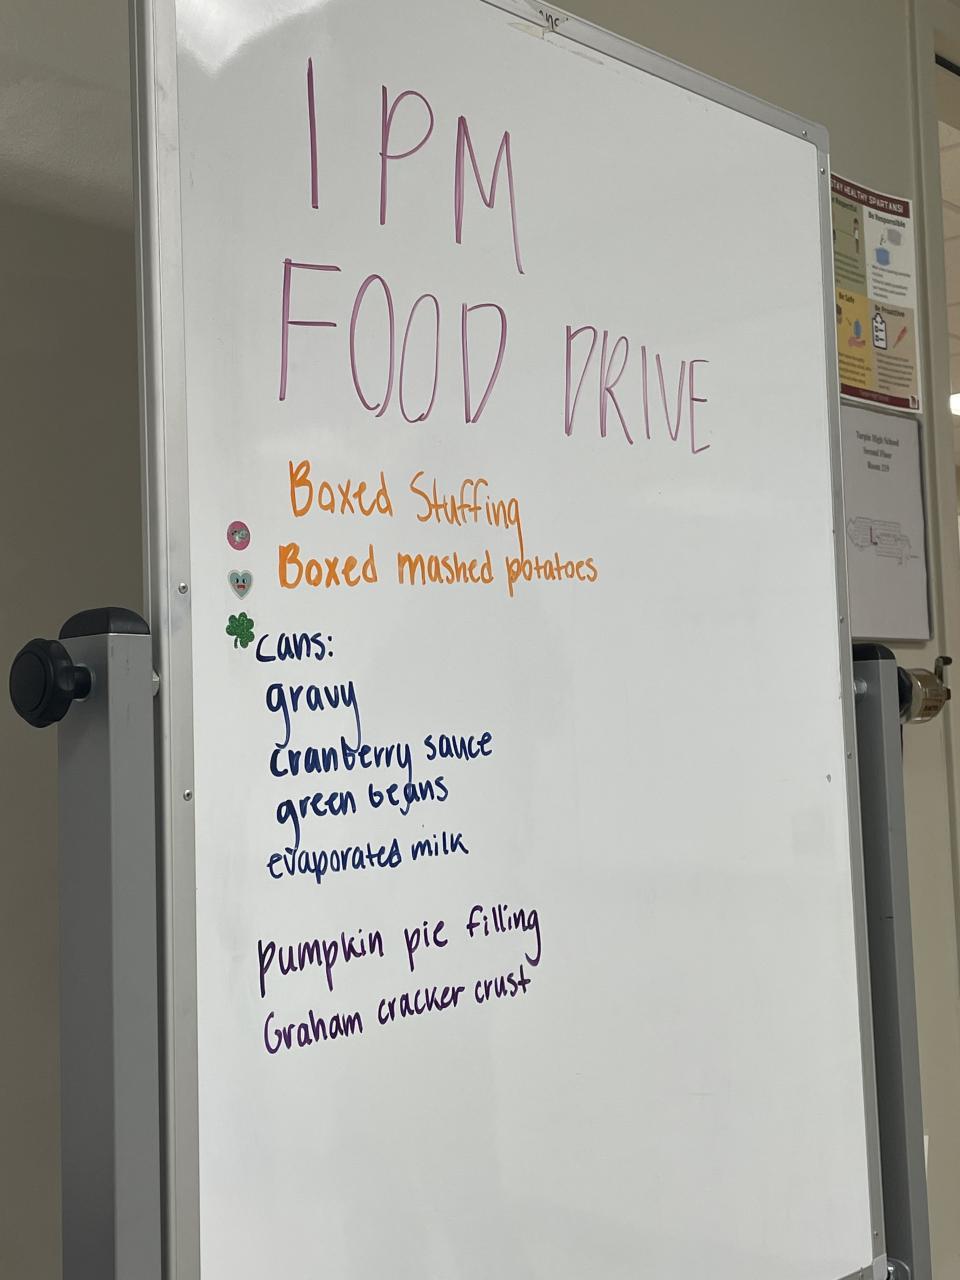 1 PM
FOOD DRIVE
Boxed Stuffing
Boxed mashed potatoes
cans:
gravy
cranberry sauce
green beans
evaporated milk
pumpkin pie filling
Graham cracker crust
STAY HEALTHY SPARTANS!
Be Responsible
Be Safe
Be Proactive
Turpin High School
Second Floor
Room 219